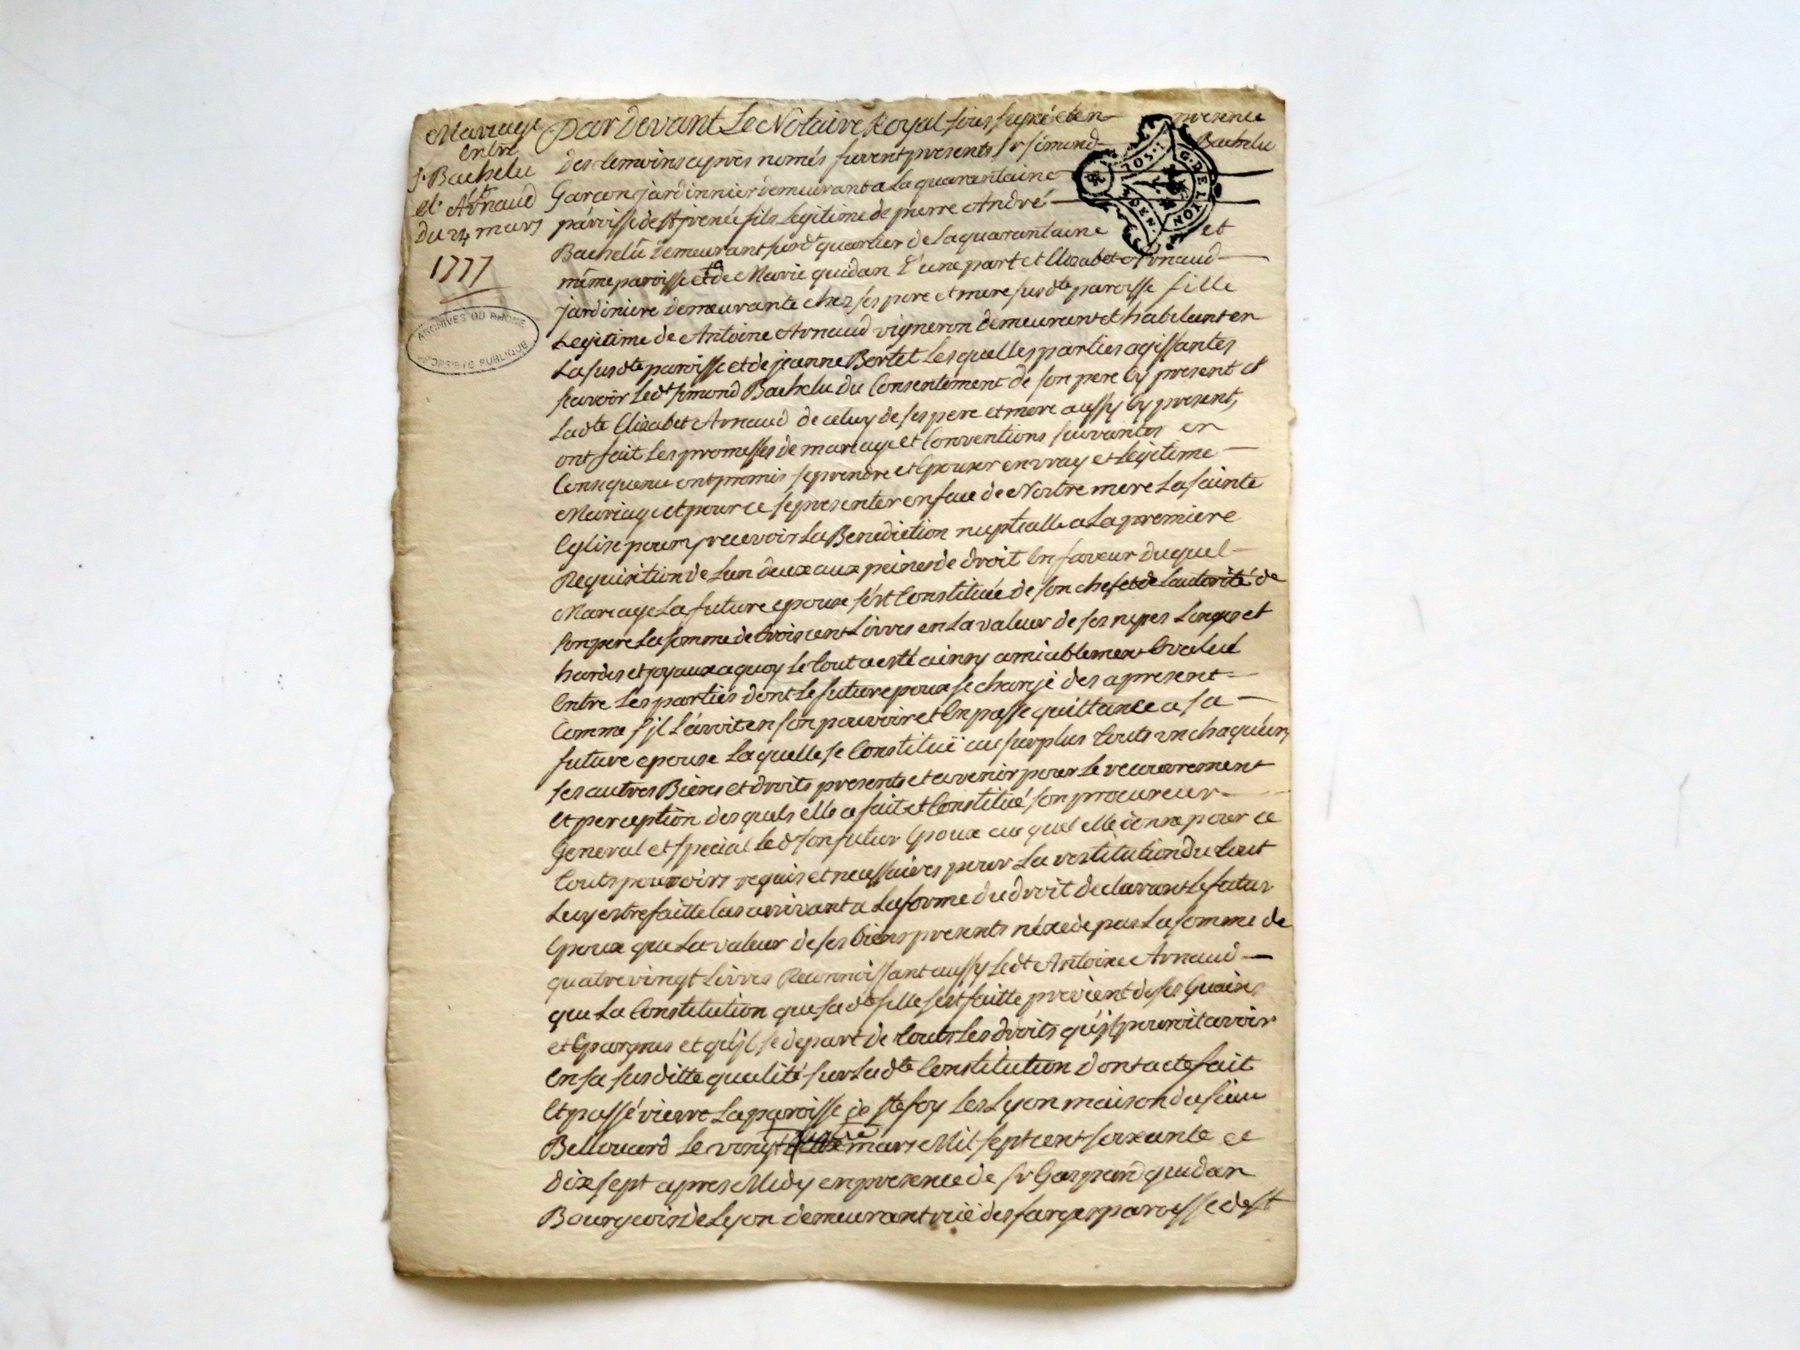 Mariage
entre
Sr Bachelu
et Arnaud
du 24 mars
1777
ARCHIVES DU RHÔNE
PROPRIÉTÉ PUBLIQUE
G. DE LION
Par Devant Le Notaire Royal soussigné et en presence
des temoins apres només furent presents Sr Simond Bachelu
Garçon jardinnier demeurant a La quarantaine
paroisse de St jrenée fils Legitime de pierre André
Bachelu demeurant susdt quartier de La quarantaine et
même paroisse et de Marie quidan d'une part et Elizabet Arnaud
jardiniere demeurante chez ses pere et mere susdte paroisse fille
Legitime de Antoine Arnaud vigneron demeurant et habitant en
La susdte paroisse et de jeanne Bertet Lesquelles parties agissantes
scavoir Ledt Simond Bachelu du Consentement de son pere Cy present et
Ladte Elizabet Arnaud de celuy de ses pere et mere aussy Cy present,
ont fait Les promesses de mariage et Conventions suivantes en
Consequence ont promis se prendre et Epouser en vray et Legitime
Mariage et pour ce se presenter en face de Nostre mere La sainte
Eglise pour y recevoir La Benediction nuptialle a La premiere
Requisition de Lun deux aux peines de droit En faveur duquel
Mariage La future epouse s'est Constituée de son chef et de Lautorité de
son pere La somme de trois cent Livres en La valeur de ses nipes Linges et
hardes et joyaux a quoy Le tout a esté ainsy amiablement Evalué
Entre Les parties dont Le futur epoux se charge des a present
Comme s'jl L'avoit en son pouvoir et En passe quittance a sa
future epouse Laquelle se Constitue au surplus touts un chaqu'un
ses autres Biens et droits presents et avenir pour Le recouvrement
et perception desquels elle a fait et Constitué son procureur
General et special Led son futur Epoux au quel elle donne pour ce
touts pouvoirs requis et necessaires pour La restitution du tout
Luy estre faitte Cas arrivant a La forme du droit declarant Le futur
Epoux que La valeur de ses biens presents n'exede pas La somme de
quatre vingt Livres Reconnoissant aussy Ledt Antoine Arnaud
que La Constitution que sa dte fille s'est faitte provient de ses Guains
et Epargnes et qu'jl se depart de touts Les droits qu'jl pouroit avoir
En sa susditte qualité sur Ladte Constitution dont acte fait
Et passé riere La paroisse de Ste foy Les Lyon maison du sieur
Bellouard Le vingt mars Mil sept cent soixante et
Dix sept apres Midy en presence de Sr Gaspard quidan
Bourgeois de Lyon demeurant ruë des farges paroisse de St